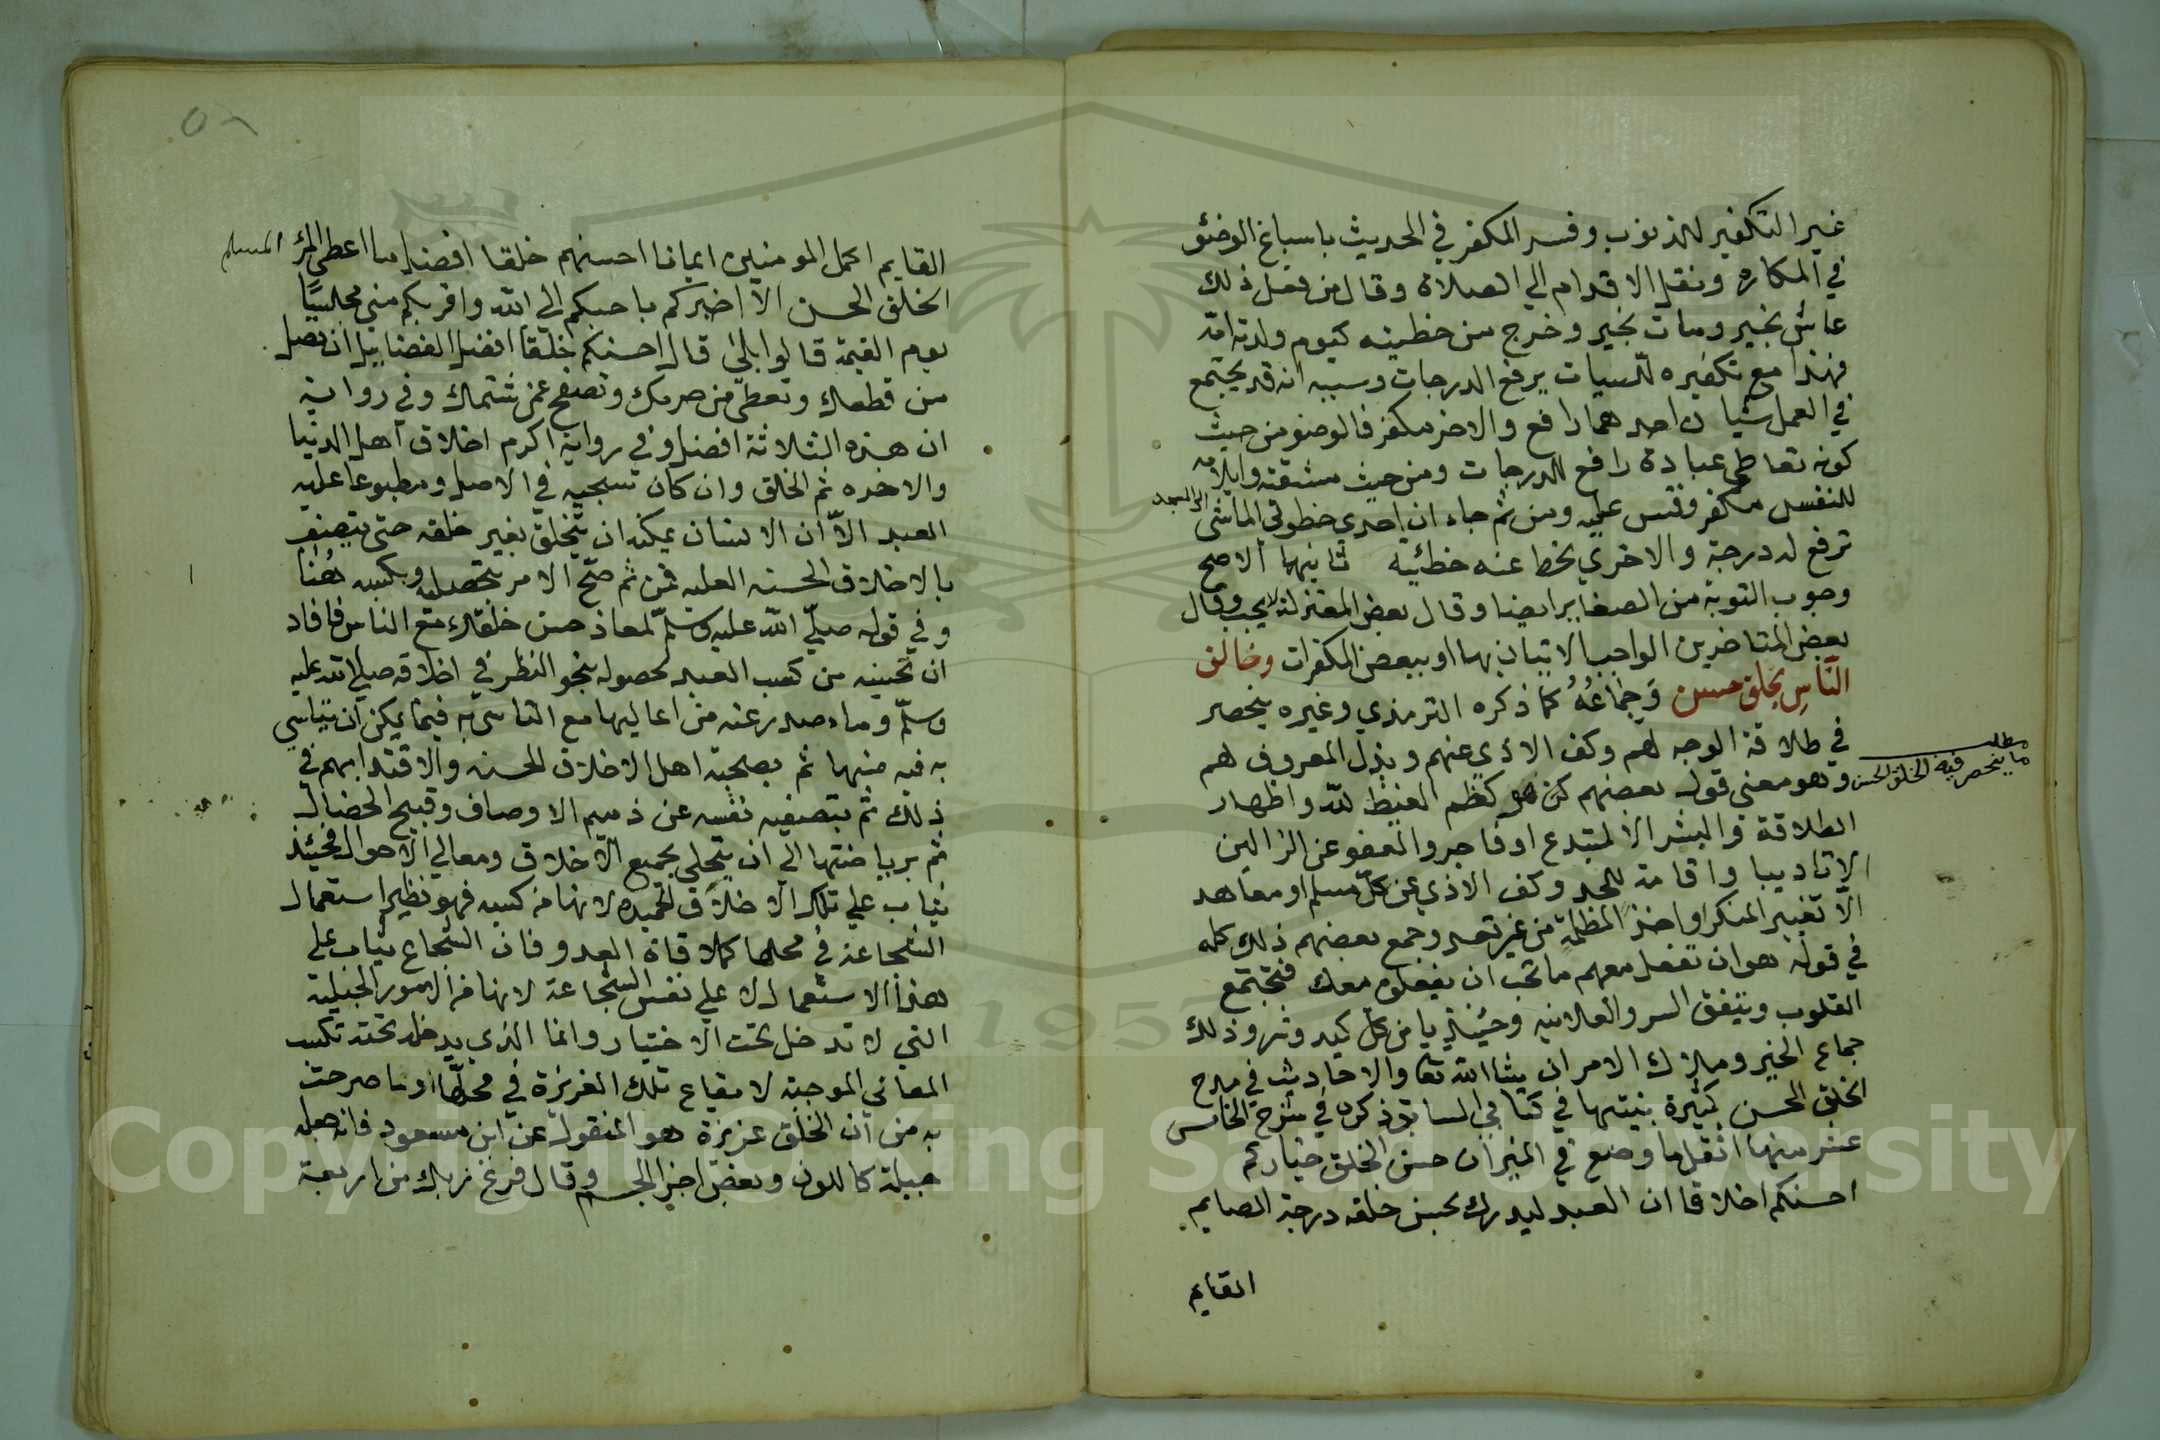 غير التكفير للذنوب وفسر المكفر في الحديث باسباغ الوضؤ
في المكاره ونقل الاقدام الي الصلاة وقال من فعل ذلك
عاش بخير ومات بخير وخرج من خطيته كيوم ولدته امه
فهذا مع تكفيره للسيات يرفع الدرجات وسببه انه قد يجتمع
في العمل شيان احدهما رافع والاخر مكفر فالوضو من حيث
كونه تعاطي عبادة رافع للدرجات ومن حيث مشقته وايلامه
للنفس مكفر وقس عليه ومن ثم جاء ان احدي خطوتي الماشي الي المسجد
ترفع له درجة والاخري يخط عنه خطئية ثانيها الاصح
وجوب التوبة من الصغاير ايضا وقال بعض المعتزلة لا يجب وقال
بعض المتاخرين الواجب الاتيان بها او ببعض المكفرات وخالق
النَّاسِ بخلق حسن وَجِمَاعُهُ كما ذكره الترمذي وغيره ينحصر
في طلاقة الوجه لهم وكف الاذي عنهم وبذل المعروف لهم
مطلب
ما ينحصر فيه الخلق الحسن
وهو معني قول بعضهم هو كظم الغيظ لله واظهار
الطلاقة والبشر الا لمبتدع او فاجر والعفو عن الزالين
الا تاديبا واقامة للحد وكف الاذي عن كل مسلم او معاهد
الّا تغيير المنكر او اخذ المظلمة من غير تعد وجمع بعضهم ذلك كله
في قوله هو ان تفعل معهم ما تحب ان يفعلوه معك فتجتمع
القلوب ويتفق السر والعلانيه وحينئذ يامن كل كيد وشر وذلك
جماع الخير وملاك الامر ان شا الله تعا والاحاديث في مدح
الخلق الحسن كثيرة بينتها في كتابي السابق ذكره في شرح الخامس
عشر منها اثقل ما وضع في الميزان حسن الخلق خياركم
احسنكم اخلاقا ان العبد ليدرك بحسن خلقه درجة الصايم
القايم
٥٨
القايم اكمل المومنين ايمانا احسنهم خلقا افضل ما اعطي المرؤ المسلم
الخلق الحسن الا اخبركم باحبكم الي الله واقربكم مني مجلسًا
يوم القيمة قالوا بلي قال احسنكم خلقا افضل الفضايل ان تصل
من قطعك وتعطي من حرمك وتصفح عمن شتمك وفي رواية
ان هذه الثلاثة افضل وفي رواية اكرم اخلاق اهل الدنيا
والاخره ثم الخلق وان كان سجيه في الاصل ومطبوعا عليه
العبد الّا ان الانسان يمكنه ان يتخلق بغير خلقه حتي يتصف
بالاخلاق الحسنه العليه فمن ثم صّح الامر بتحصيله وكسبه هُنا
وفي قوله صلّي الله عليه وسلّم لمعاذ حسن خلقك مع الناس فافاد
ان تحسينه من كسب العبد لحصوله بنحو النظر في اخلاقه صلي الله عليه
وسلّم وما صدر عنه من اعاليها مع التاسي به فيما يمكن ان يتاسي
به فيه منها ثم بصحبة اهل الاخلاق الحسنه والاقتدا بهم في
ذلك ثم بتصفيه نفسه عن ذميم الاوصاف وقبيح الخصال
ثم برياضتها الي ان يتحلي بجميع الاخلاق ومعالي الاحوال فحينئذ
يثاب علي تلك الاخلاق الحميده لانها من كسبه فهو نظير استعمال
الشجاعة في محلها كملاقاة العدو فان الشجاع يثاب علي
هذا الاستعمال لا علي نفس الشجاعة لانها من الامور الجبلية
التي لا تدخل تحت الاختيار وانما الذي يدخل تحته تكسب
المعاني الموجبة لايقاع تلك الغريزة في محلّها وما صرحت
به من ان الخلق غريزة هو المنقول عن ابن مسعود فانه جعله
جبلة كاللون وبعض اجزا الجسم وقال فرغ ربك من اربعة
Copyright © King Saud University
1957